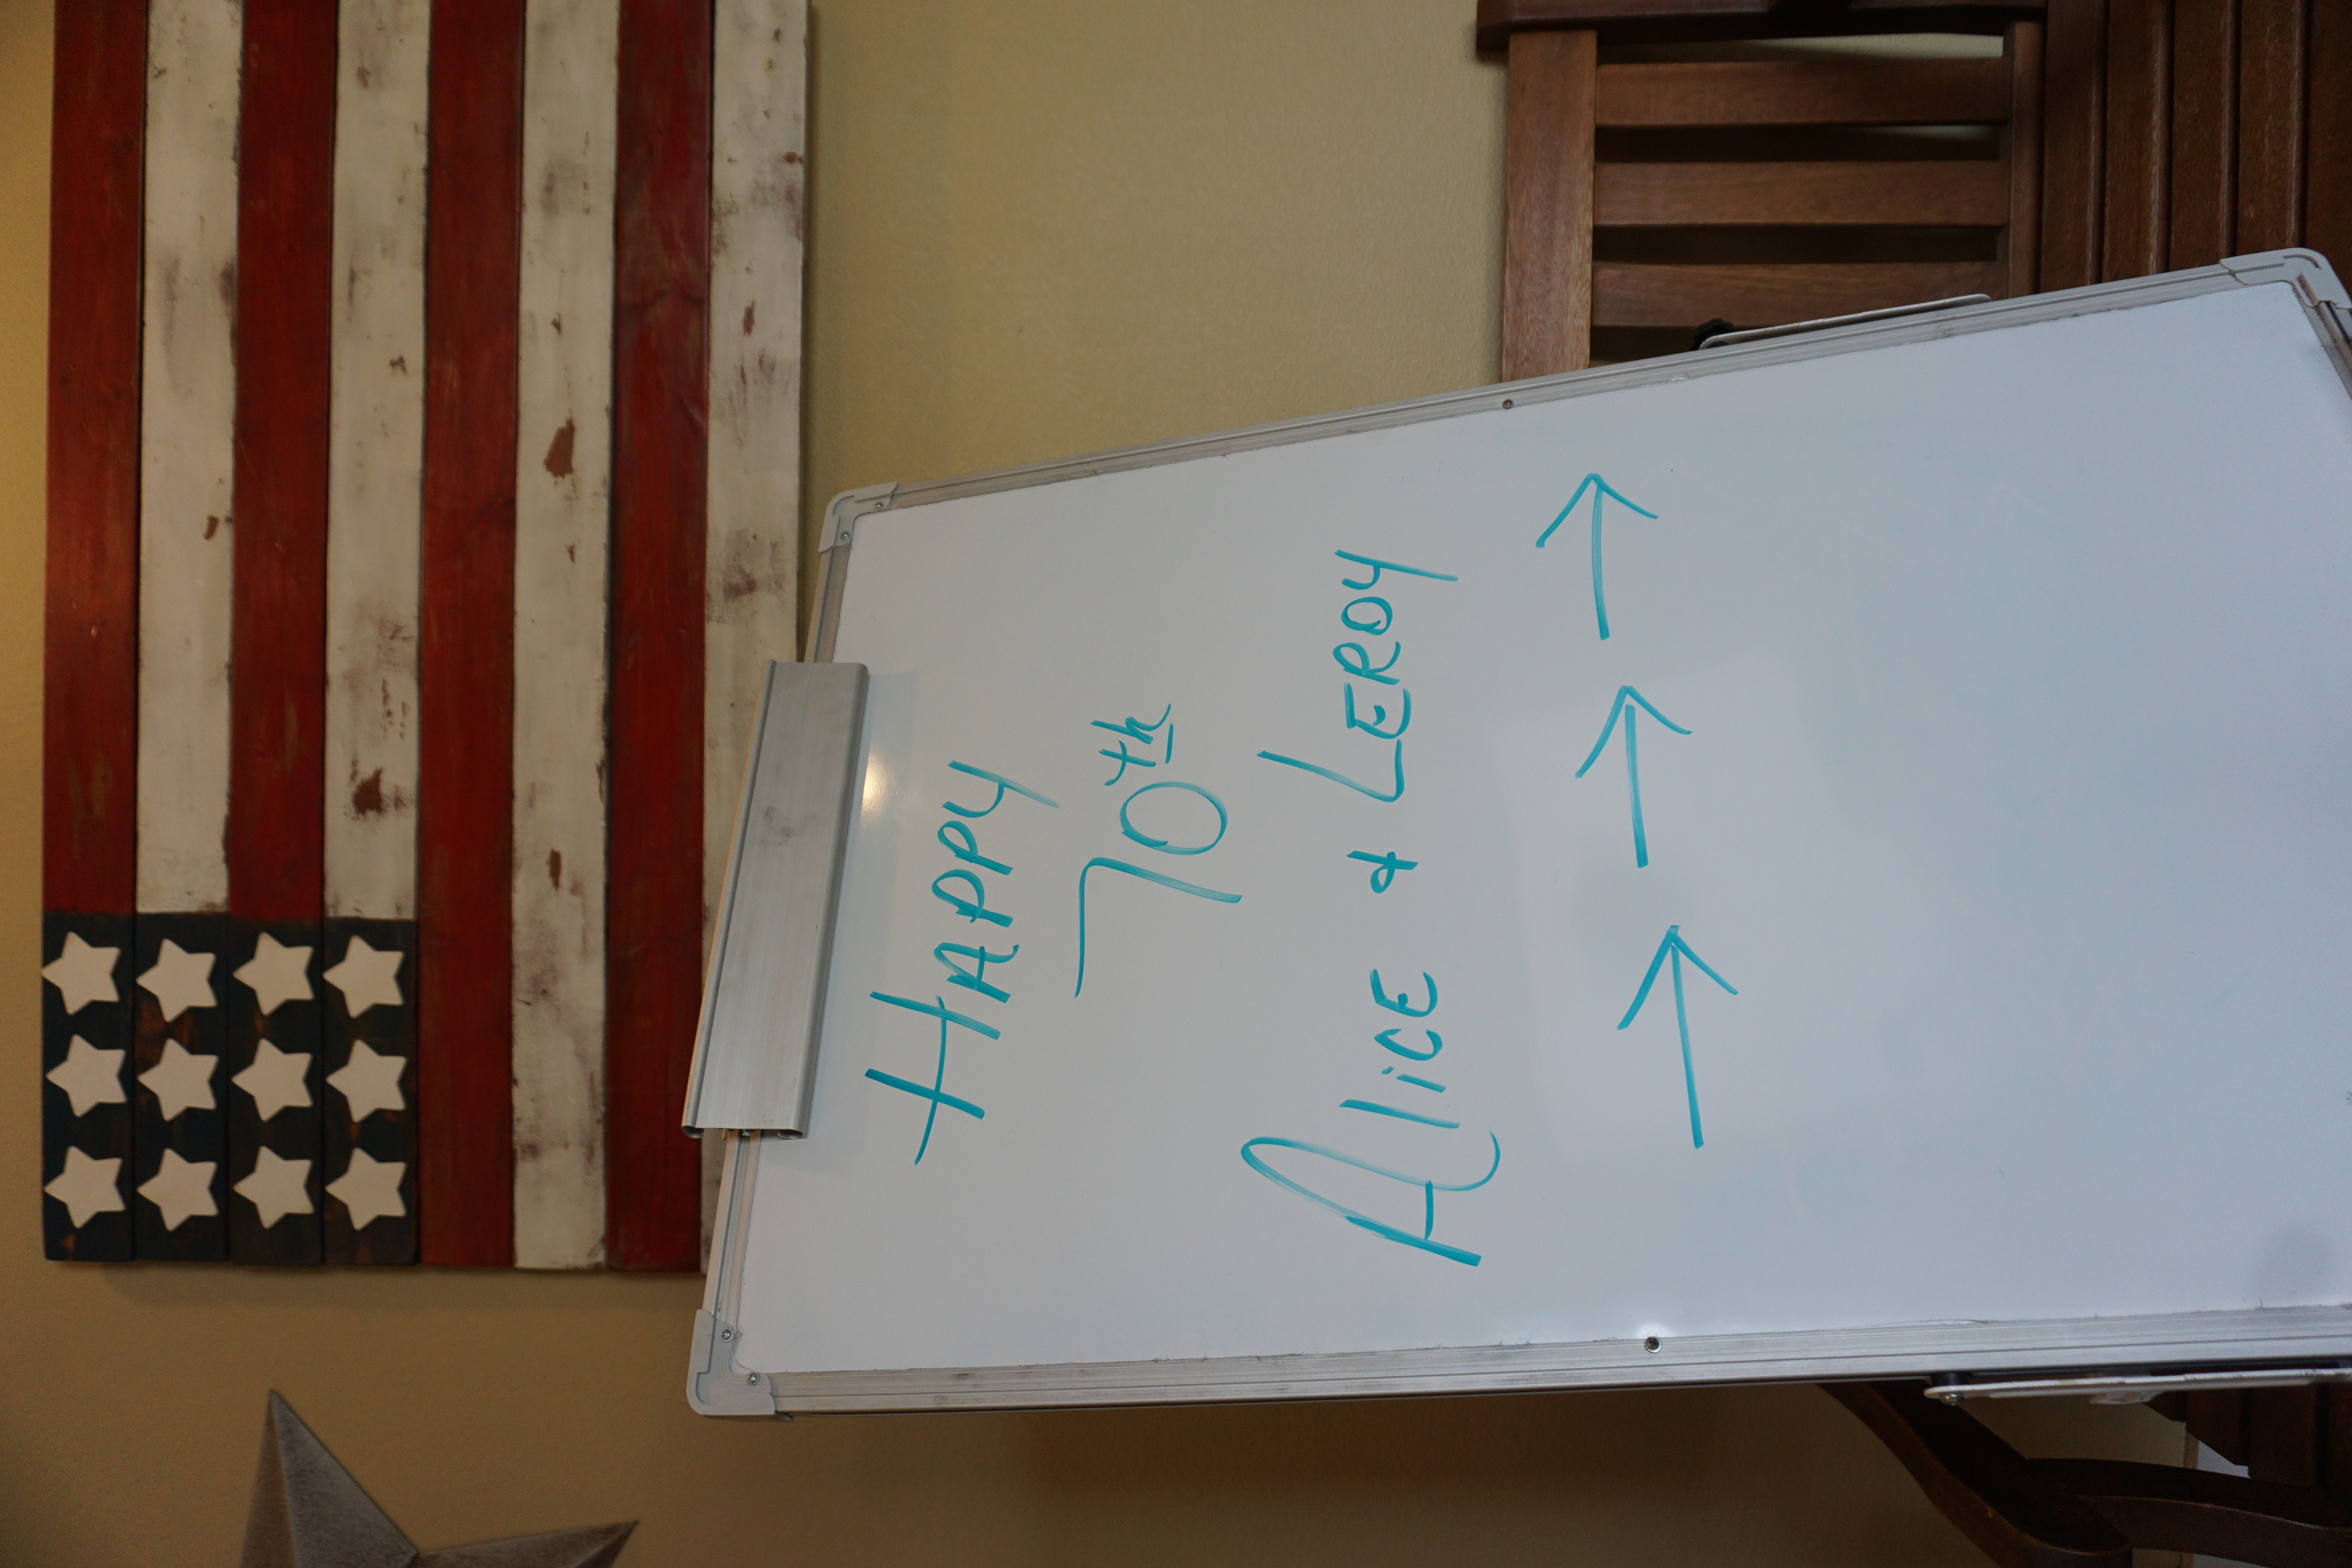 HAPPY
70th
AlicE & LEROY
→ → →